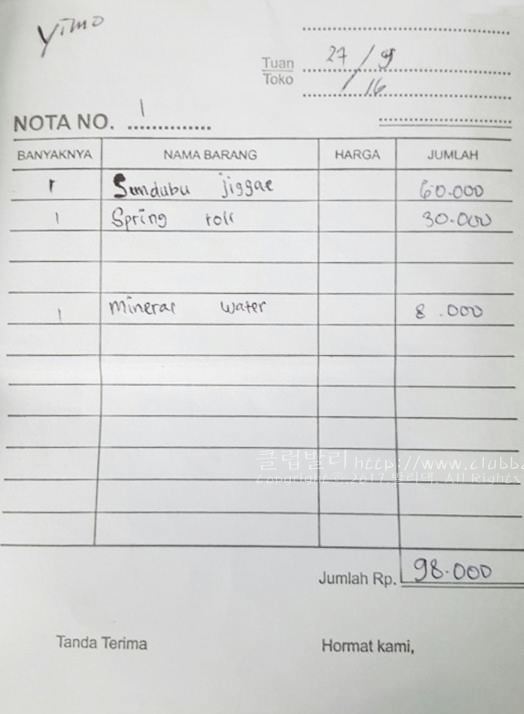 Yimo
Tuan 27 / 9
Toko / 16
NOTA NO. 1
BANYAKNYA NAMA BARANG HARGA JUMLAH
1 Sundubu jiggae 60.000
1 Spring roll 30.000
1 Mineral water 8.000
클럽발리 http://www.clubb
Copyright © 2017 발리댁. All Rights
Jumlah Rp. 98.000
Tanda Terima Hormat kami,